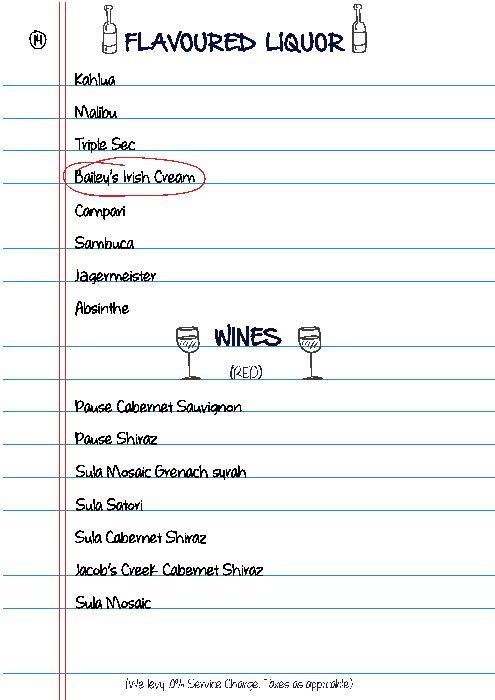 14
FLAVOURED LIQUOR
Kahlua
Malibu
Triple Sec
Bailey's Irish Cream
Campari
Sambuca
Jagermeister
Absinthe
WINES
(RED)
Pause Cabernet Sauvignon
Pause Shiraz
Sula Mosaic Grenach syrah
Sula Satori
Sula Cabernet Shiraz
Jacob's Creek Cabernet Shiraz
Sula Mosaic
(We levy Service Charge. Taxes as applicable)